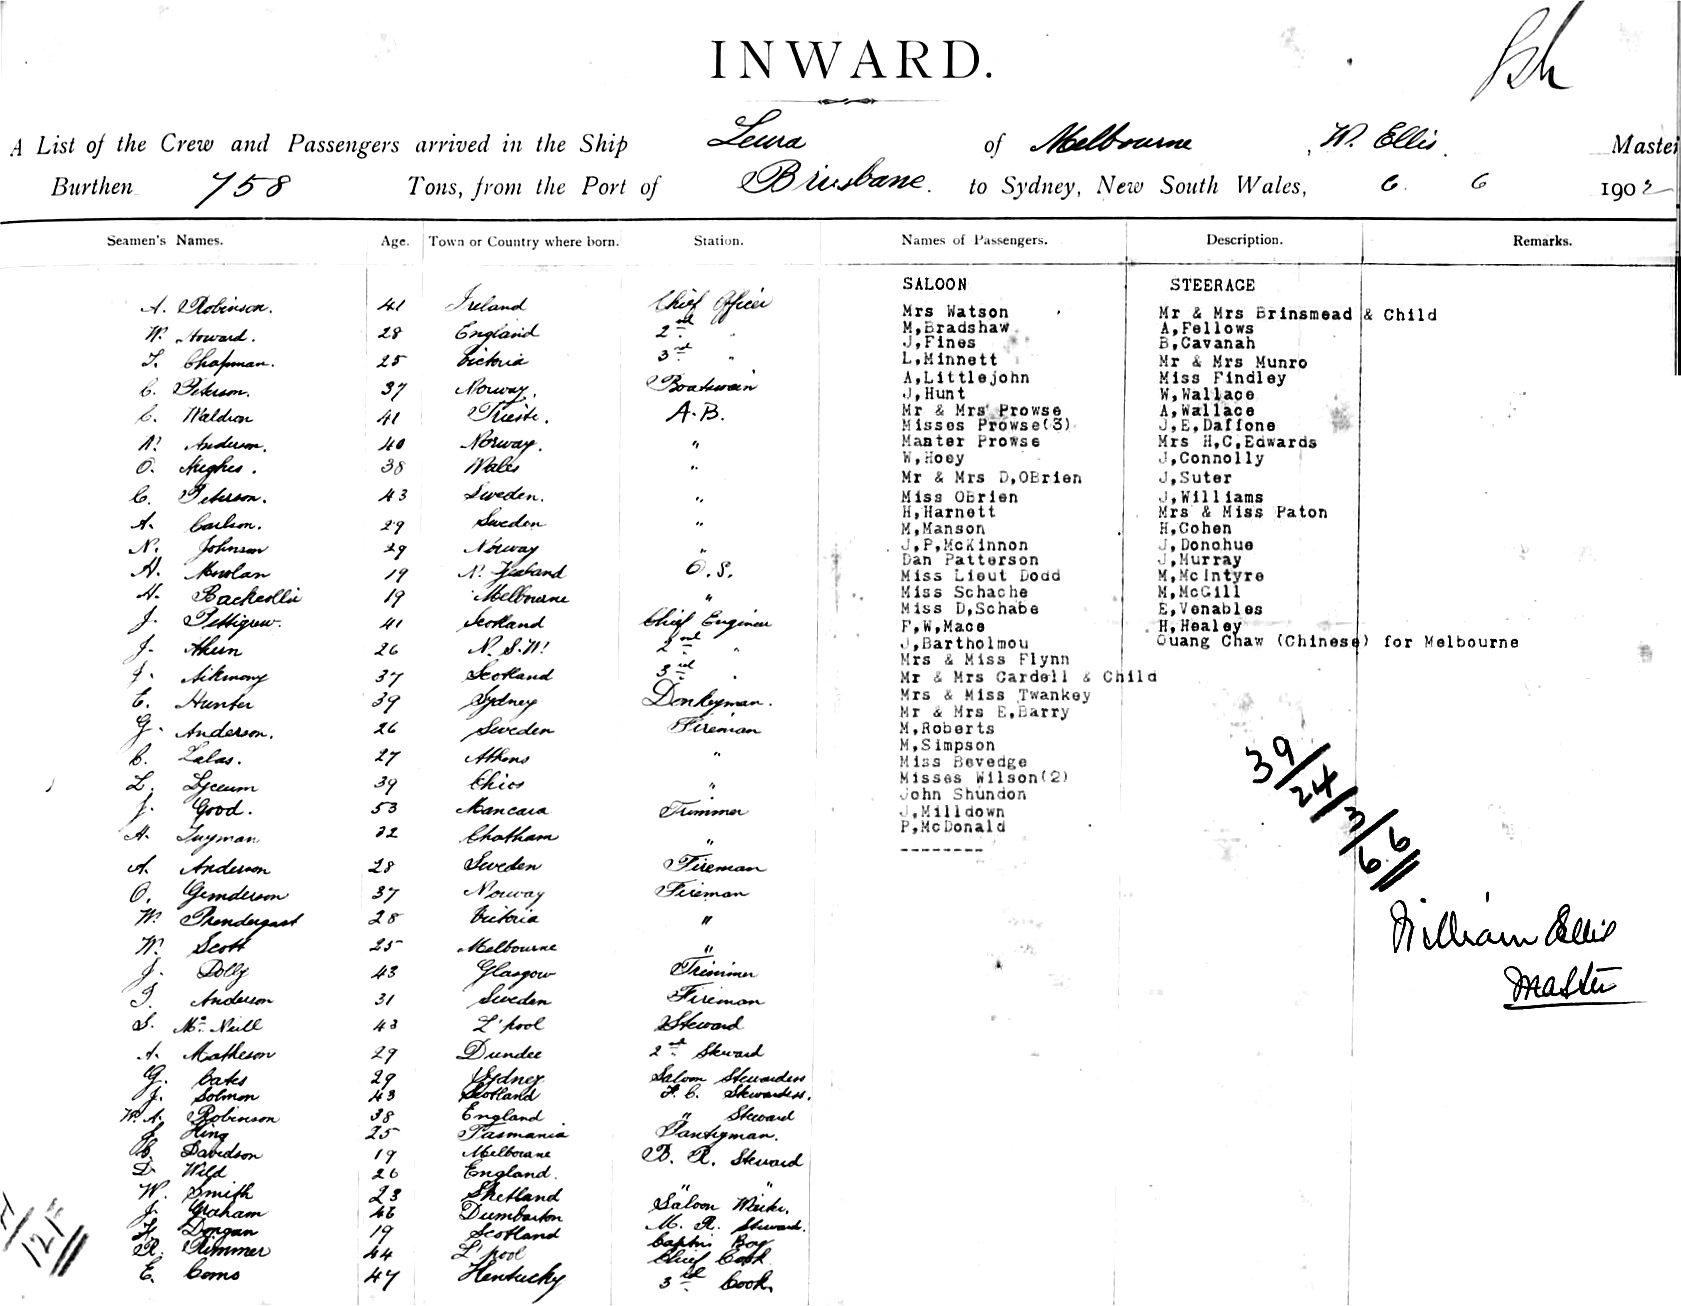 INWARD.
A List of the Crew and Passengers arrived in the Ship Leura of Melbourne, W. Ellis. Master
Burthen 758 Tons, from the Port of Brisbane. to Sydney, New South Wales, 6 6 1902
Seamen's Names. Age. Town or Country where born. Station. Names of Passengers. Description. Remarks.
A. Robinson. 41 Ireland Chief Officer
W. Howard. 28 England 2nd "
T. Chapman. 25 Victoria 3rd "
C. Peterson. 37 Norway. Boatswain
C. Waldron 41 Trieste. A.B.
N. Anderson. 40 Norway. "
O. Hughes. 38 Wales "
C. Peterson. 43 Sweden. "
A. Carlson. 29 Sweden "
N. Johnson 29 Norway "
H. 19 N. Zealand O.S.
H. 19 Melbourne "
J. Pettigrew. 41 Scotland Chief Engineer
J. Ahern 26 N.S.W. 2nd "
J. 37 Scotland 3rd "
E. Hunter 39 Sydney Donkeyman.
G. Anderson. 26 Sweden Fireman
C. Lalas. 27 Athens "
L. Lyceum 39 Chios "
J. Good. 53 Trimmer
H. 32 Chatham "
A. Anderson 28 Sweden Fireman
O. Gunderson 37 Norway Fireman
W. Prendergast 28 Victoria "
W. Scott 25 Melbourne "
J. Dolly 43 Glasgow Trimmer
I. Anderson 31 Sweden Fireman
S. McNeill 43 L'pool Steward
A. Matheson 29 Dundee 2nd Steward
G. Cates 29 Sydney Saloon Stewardess
J. Solmon 43 Scotland F.C. Stewardess.
W.A. Robinson 38 England " Steward
King 25 Tasmania Pantryman.
C. Davidson 19 Melbourne B.R. Steward
D. Wild 26 England. " "
W. Smith 23 Shetland Saloon Waiter.
J. Graham 46 Dumbarton M.R. Steward.
H. Dorgan 19 Scotland Captns Boy
R. Rimmer 44 L'pool Chief Cook
E. Coms 47 Kentucky 3rd Cook
SALOON
Mrs Watson
M,Bradshaw
J,Fines
L,Minnett
A,Littlejohn
J,Hunt
Mr & Mrs Prowse
Misses Prowse(3)
Master Prowse
W,Hoey
Mr & Mrs D,OBrien
Miss OBrien
H,Harnett
M,Manson
J,P,McKinnon
Dan Patterson
Miss Lieut Dodd
Miss Schache
Miss D,Schabe
F,W,Mace
J,Bartholmou
Mrs & Miss Flynn
Mr & Mrs Cardell & Child
Mrs & Miss Twankey
Mr & Mrs E,Barry
M,Roberts
M,Simpson
Miss Bevedge
Misses Wilson(2)
John Shundon
J,Milldown
P,McDonald
--------
STEERAGE
Mr & Mrs Brinsmead & Child
A,Fellows
B,Cavanah
Mr & Mrs Munro
Miss Findley
W,Wallace
A,Wallace
J,E,Daffone
Mrs H,C,Edwards
J,Connolly
J,Suter
J,Williams
Mrs & Miss Paton
H,Cohen
J,Donohue
J,Murray
M,McIntyre
M,McGill
E,Venables
H,Healey
Quang Chaw (Chinese) for Melbourne
39/24/3/66
William Ellis
Master